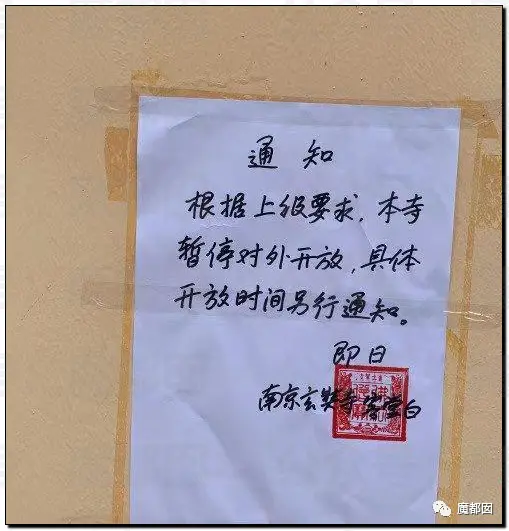 通知
根据上级要求，本寺
暂停对外开放，具体
开放时间另行通知。
即日
南京玄奘寺客堂白
魔都囡